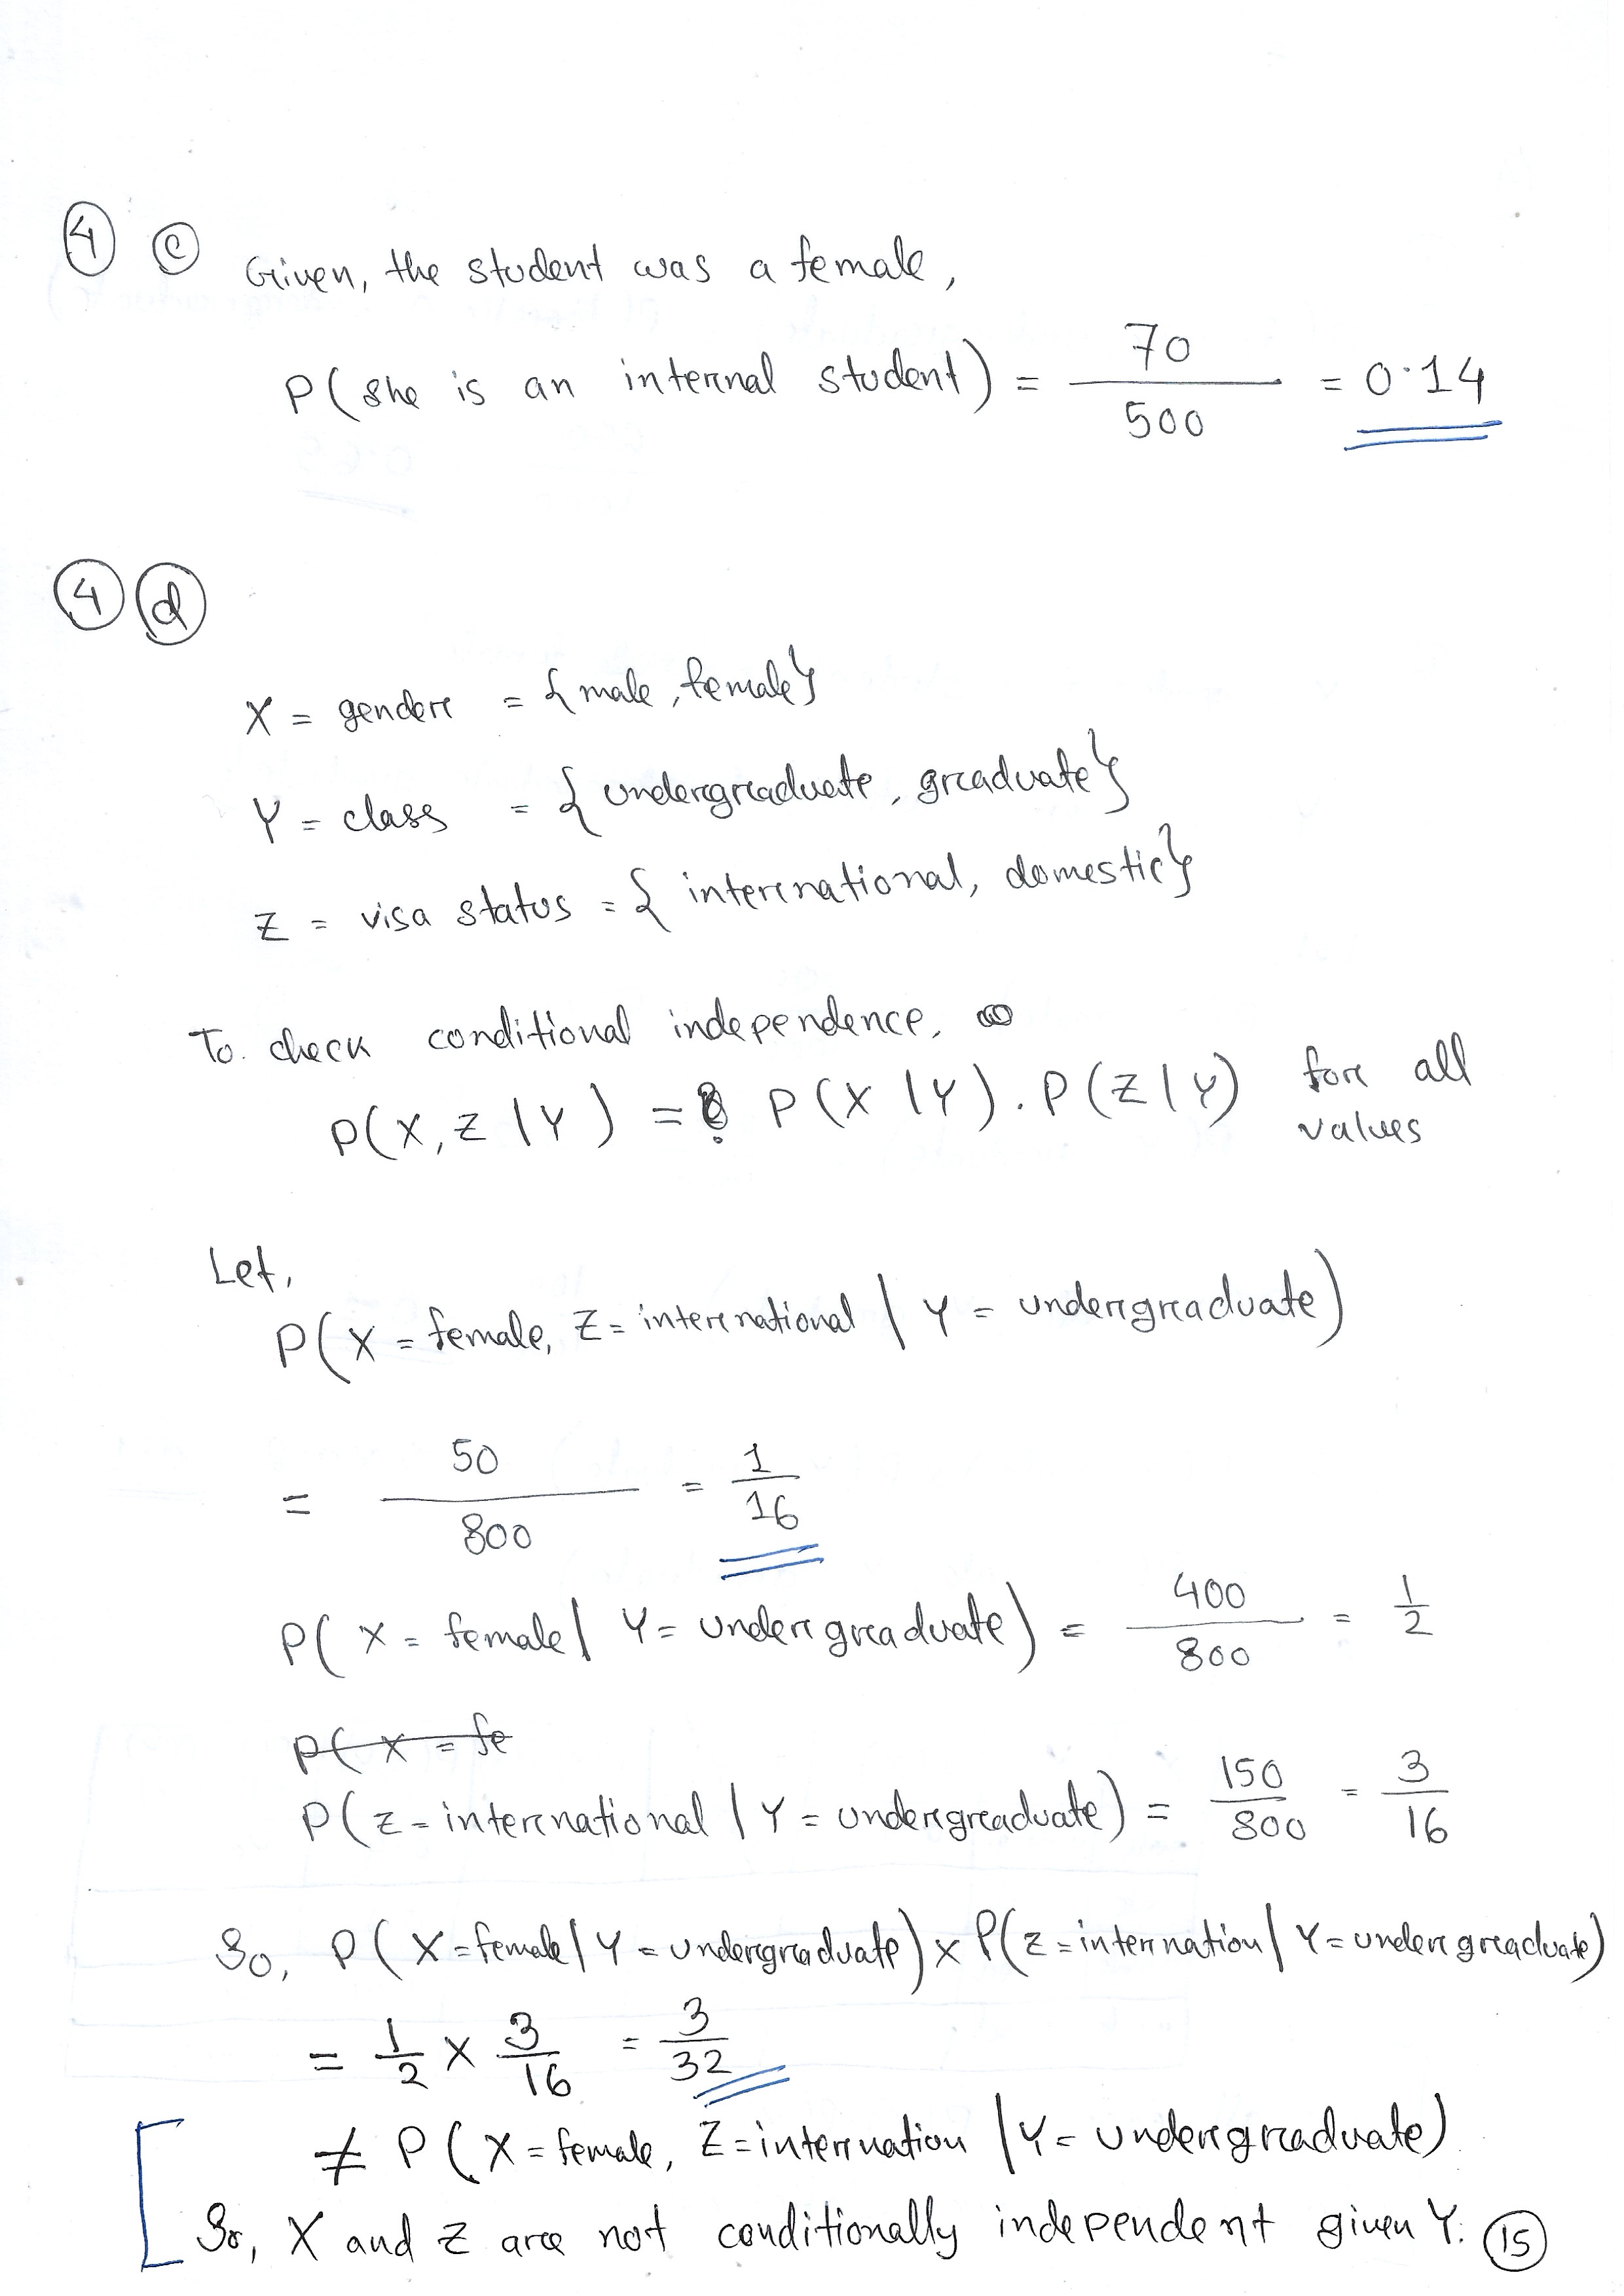 4 c Given, the student was a female,
P(she is an internal student) = 70/500 = 0.14
4 d
X = gender = {male, female}
Y = class = {undergraduate, graduate}
Z = visa status = {international, domestic}
To check conditional independence,
P(X, Z | Y) = P(X | Y) . P(Z | Y) for all values
Let,
P(X = female, Z = international | Y = undergraduate)
= 50/800 = 1/16
P(X = female | Y = undergraduate) = 400/800 = 1/2
P(X = fe
P(Z = international | Y = undergraduate) = 150/800 = 3/16
So, P(X = female | Y = undergraduate) x P(Z = internation | Y = undergraduate)
= 1/2 x 3/16 = 3/32
≠ P(X = female, Z = internation | Y = undergraduate)
So, X and Z are not conditionally independent given Y. 15